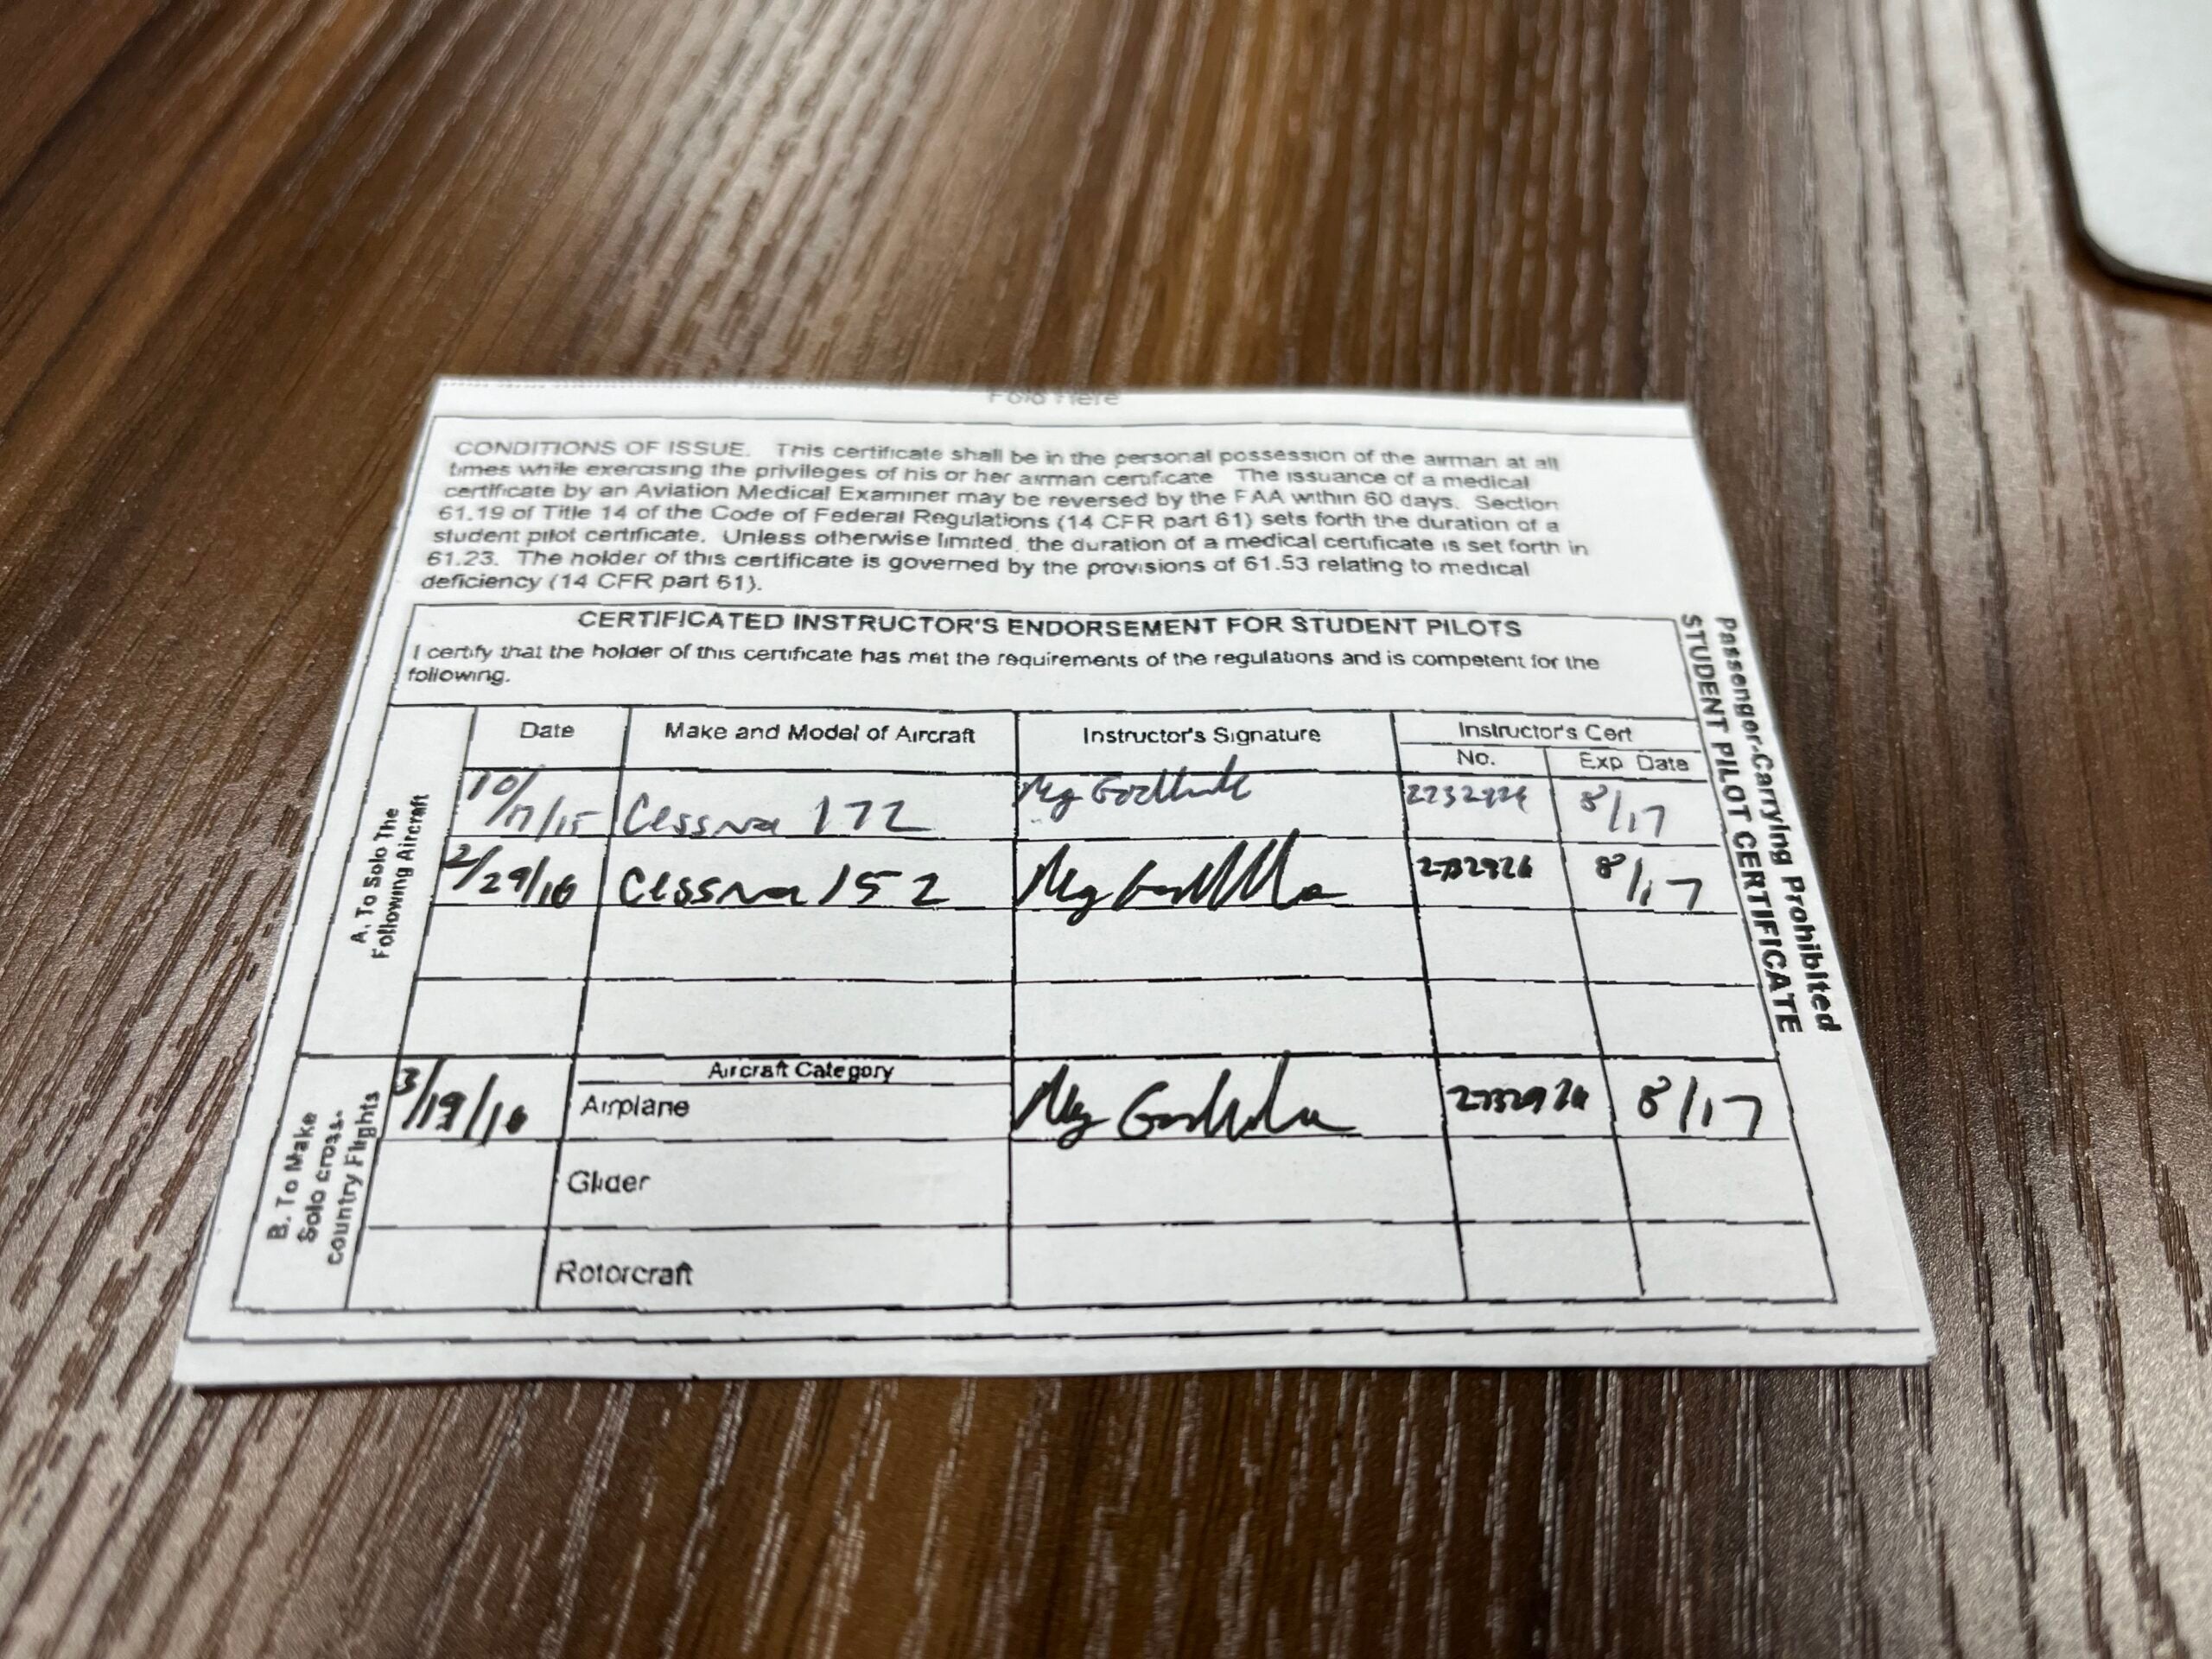 Fold Here
CONDITIONS OF ISSUE. This certificate shall be in the personal possession of the airman at all
times while exercising the privileges of his or her airman certificate The issuance of a medical
certificate by an Aviation Medical Examiner may be reversed by the FAA within 60 days. Section
61.19 of Title 14 of the Code of Federal Regulations (14 CFR part 61) sets forth the duration of a
student pilot certificate. Unless otherwise limited, the duration of a medical certificate is set forth in
61.23. The holder of this certificate is governed by the provisions of 61.53 relating to medical
deficiency (14 CFR part 61).
CERTIFICATED INSTRUCTOR'S ENDORSEMENT FOR STUDENT PILOTS
I certify that the holder of this certificate has met the requirements of the regulations and is competent for the
following.
Passenger-Carrying Prohibited
STUDENT PILOT CERTIFICATE
A. To Solo The
Following Aircraft
Date Make and Model of Aircraft Instructor's Signature Instructor's Cert
No. Exp Date
10/17/15 Cessna 172 8/17
2/29/16 Cessna 152 8/17
B. To Make
Solo cross-
country Flights
Aircraft Category
3/19/16 Airplane 8/17
Glider
Rotorcraft